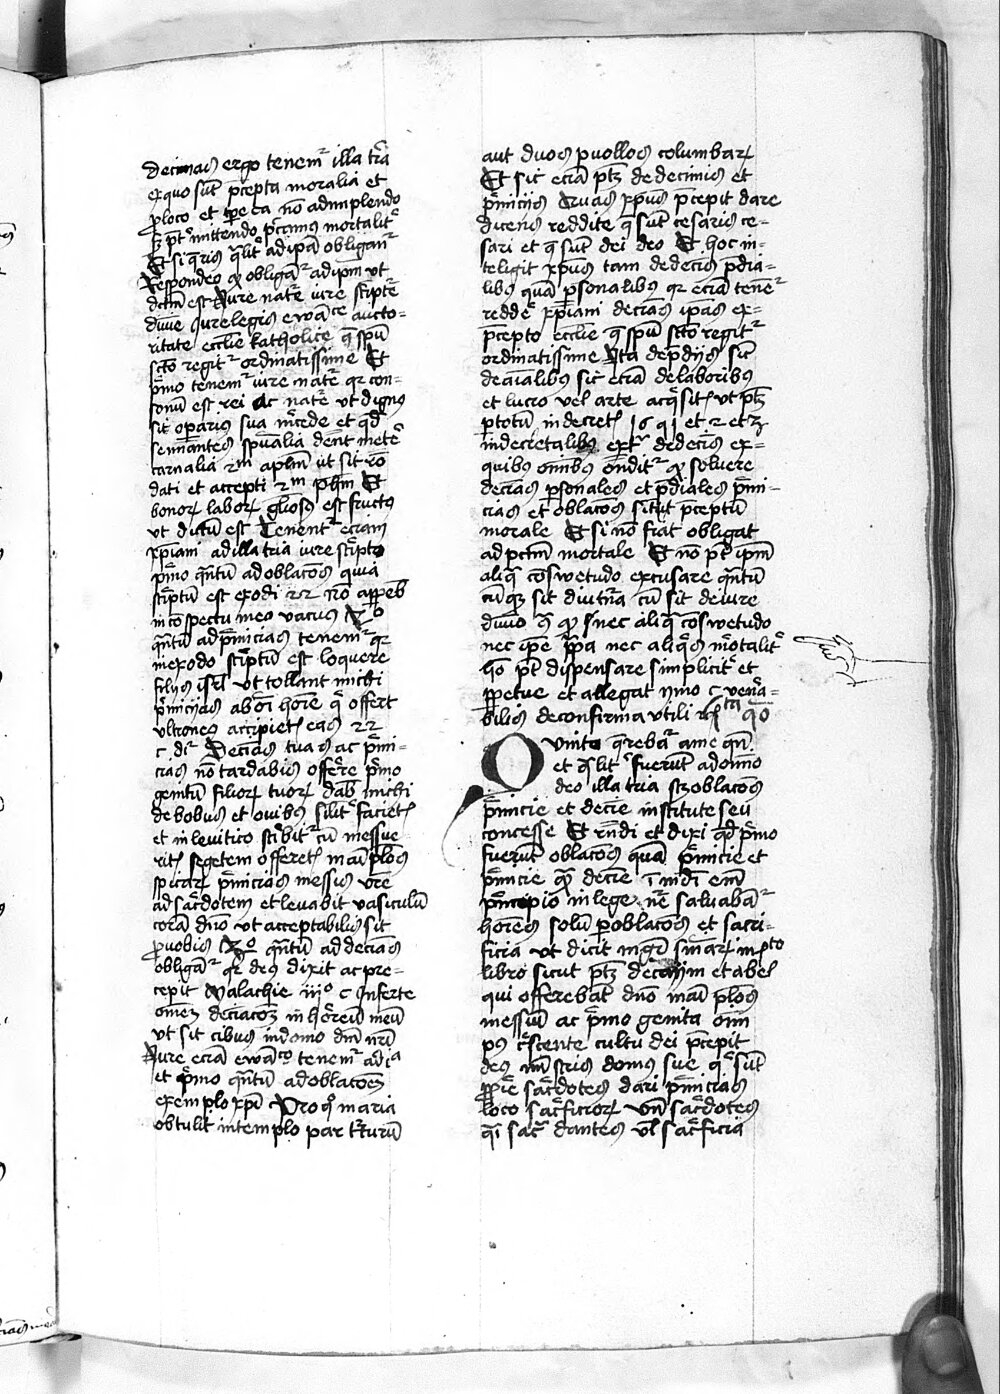 decimas ergo tenemᷣ illa tr̄a
ex quo sūt p̄cepta moralia et
ꝓ loco et tp̄e ea nō adimplendo
pᷣmittendo peccamus mortalitᷣ
Et si q̄ris qͣlitᷣ ad ip̄a obliganᷣ
Respondeo ꝙ obligāᷣ ad ip̄m ut
dc̄m est Jure natᷣe iure scͥpte
diuīe Jure legis ewāᶜᵉ aucto-
ritate ecclīe katholice q̄ spū
sc̄to regitᷣ ordinatissime Et
pͥmo tenemᷣ iure natᷣe qꝛ con-
sonū est rei ac natᷣe ut dignus
sit oꝑarius sua mᷣcede et qd̄
seminantes spūalia dēnt metᷣe
carnalia 2m̄ apl̄m ut sit rō
dati et accepti 2m̄ ph̄m Et
bonoꝝ laboꝝ gl̄iosus est fructus
ut dictū est Tenentᷣ eciam
xp̄iani ad illa tria iure scͥpto
pͥmo qn̄tū ad oblacōes quia
scͥptū est exodi 22 nō appēb
in cōspectu meo vacuus 2º
qn̄tū ad pͥmicias tenemᷣ qꝛ
in exodo scͥptū est loquere
filijs isrl̄ ut tollant michi
pͥmicijas ab oī hoīe qͥ offert
ultroneus accipietꝭ eas 22
c dr̄ Decias tuas ac pͥmi-
cias nō tardabis offerre pͥmo
genitū filioꝝ tuoꝝ dab̄ michi
de bobus et ouibus silitᷣ facietꝭ
et in leuitico scͥbitᷣ cū messue
ritꝭ segetem offeretꝭ manīplos
spicaꝝ pͥmicias messis vr̄e
ad sac̄dotem et leuabit vasiculū
corā dn̄o ut acceptabilis sit
ꝓ vobis 3º qn̄tū ad decias
obligāᷣ qꝛ deus dixit ac pre-
cepit Malachie iijº c Inferte
om̄em deciacōem in horreū meū
ut sit cibus in domo dn̄i nr̄i
Jure eciā ewāᶜᵒ tenemᷣ ad iª
et pͥmo qn̄tū ad oblacōem
exemplo xp̄i Pro qͦ maria
obtulit in templo par turturū
aut duos puollos columbaꝝ
Et sic eciā ptꝫ de decimis et
pͥmicijs Cuius xp̄us p̄cepit dare
dicens reddite q̄ sūt cesaris ce-
sari et q̄ sūt dei deo Et hoc in-
teligit xp̄us tam de decis p̄dia-
libus quā ꝑsonalibus qꝛ eciā tenēᷣ
redde xp̄iani decias ip̄as ex-
p̄cepto ecclīe q̄ spū sc̄to regitᷣ
ordinatissime Ita de p̄dijs sic
de aīalibus sic eciā de laboribus
et lucro vel arte acqͥsitꝭ ut ptꝫ
ꝑ totū in decretꝭ 16 q1 et 2 et 3
in decretalibus exᵃ de decis ex-
quibus omībus ondͥtᷣ ꝙ soluere
decias ꝑsonales et p̄diales pͥmi-
cias et oblacōes sit p̄ceptū
morale Et si nō fiat obligat
ad pctm̄ mortale Et nō pt̄ ip̄m
aliqͣ cōswetudo excusare qn̄tū
cūqꝫ sit diutᷣna cū sit de iure
diuīo qͣ ꝙ nec aliqͣ cōswetudo
nec ip̄e papa nec aliqͥs mortalitᷣ
hō pt̄ dispensare simplicitᷣ et
ꝑpetue et allegat ymo c venᷣa-
bilis de confirma vtili rͫ qͦ
Quinto q̄rebaᷣ a me qn̄
et qͣlitᷣ fuerūt ad omnio
deo illa tria scꝫ oblacōes
pͥmicie et decie institute seu
concesse Et rn̄di et dixi qd̄ pͥmo
fuerūt oblacōes quā pͥmicie et
pͥmicie qͣ decie ī mūdi em̄
pͥncipio in lege nᷣe saluabāᷣ
hoīes solū ꝑ oblacōes et sacri-
ficia ut dicit mgr̄ sniaꝝ in pͭᵒ
libro sicut ptꝫ de cayim et abel
qui offerebāt dn̄o manīplos
messiū ac pͥmo genita om̄i
p9 cᷣscente cultu dei p̄cepit
deus mīstris domus sue qͥ sūt
ꝓprie sac̄dotes dari pͥmicias
loco sac̄ficioꝝ vn̄ sac̄dotes
qͣi sac̄ dantes vl̄ sac̄ficia